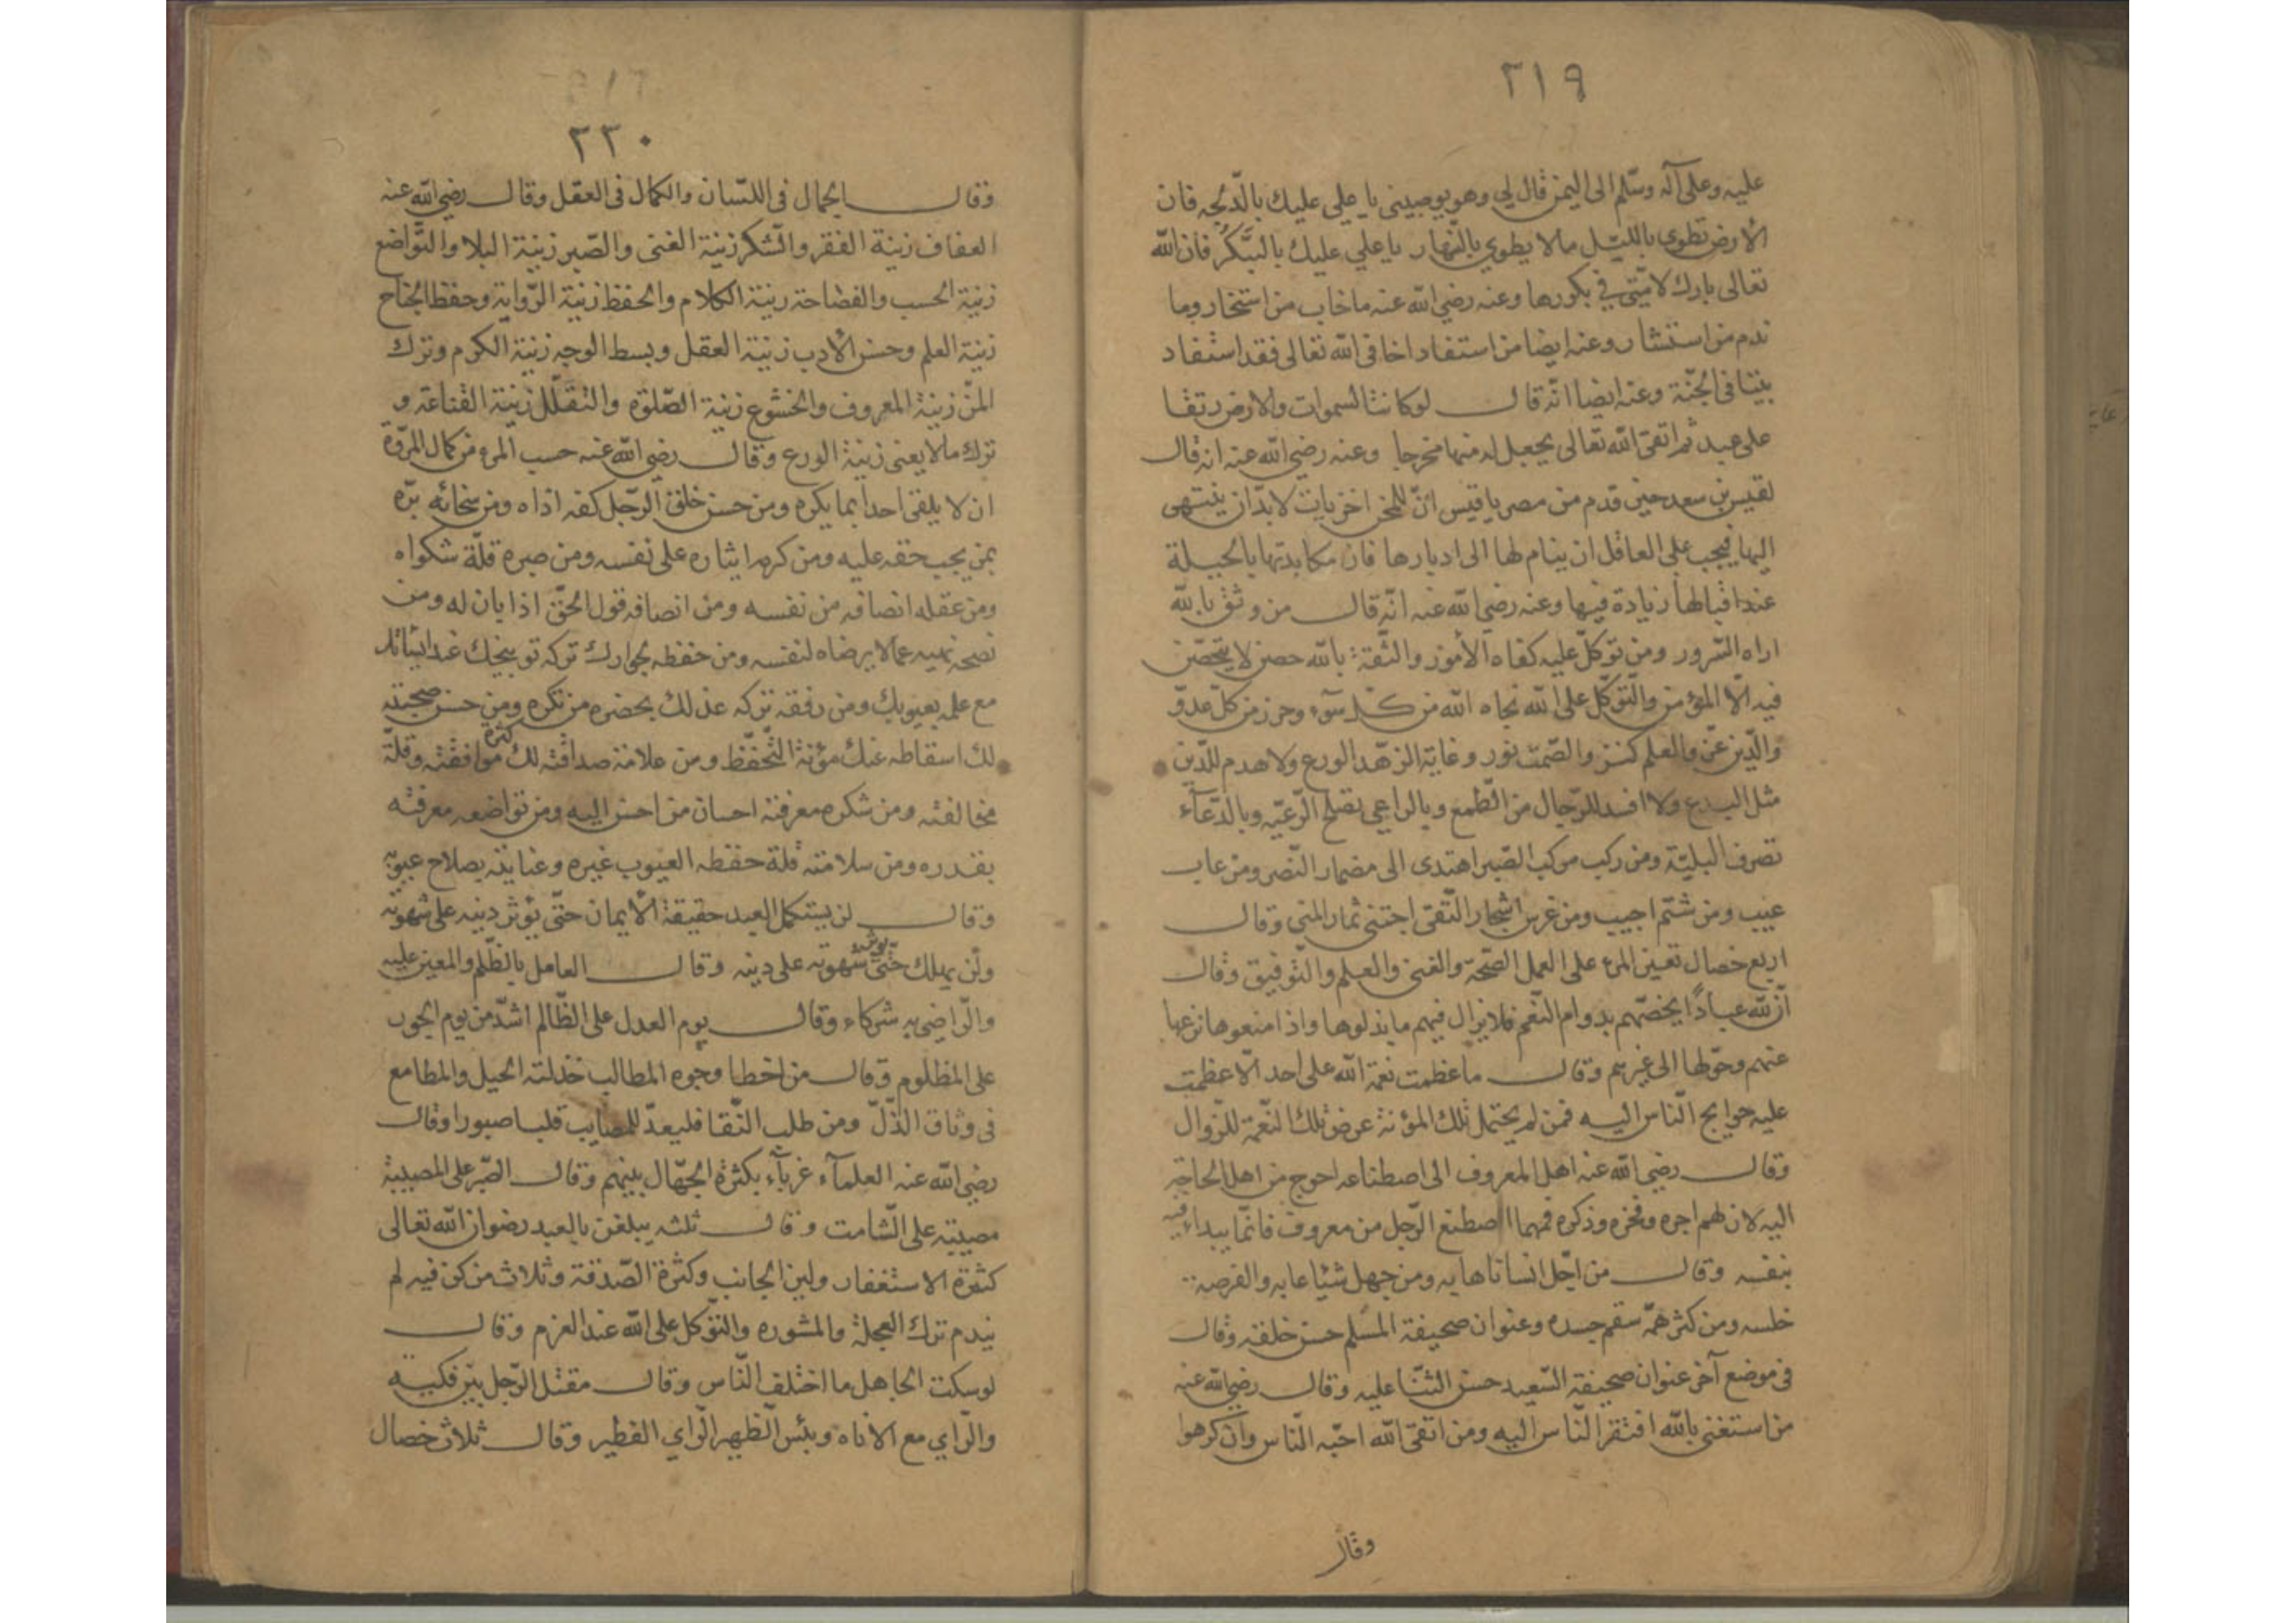 ٢١٩
عليه وعلى آله وسّلم الى اليمن قال لي وهو يوصيني يا علي عليك بالدّلجه فان
الارض تطوى بالليّل مالا يطوى بالنّهار يا علي عليك بالتبّكّر فان الله
تعالى بارك لامّتي في بكورها وعنه رضي الله عنه ما خاب من استخار وما
ندم من استشار وعنه ايضا من استفاد اخا في الله تعالى فقد استفاد
بيتا في الجنّة وعنه ايضا انّه قال لو كانت السموات والارض رتقا
على عبد ثم اتقى الله تعالى يجعل له منها مخرجا وعنه رضي الله عنه انه قال
لقيس بن سعد حين قدم من مصر يا قيس انّ للمحن اخريات لا بدّ ان ينتهى
اليها فيجب على العاقل ان ينام لها الى ادبارها فان مكابدتها بالحيلة
عند اقبالها زيادة فيها وعنه رضي الله عنه انّه قال من وثق بالله
اراه السّرور ومن توكلّ عليه كفاه الأمور والثّقة بالله حصن لا يتحصّن
فيه الّا المؤمن والتّوكّل على الله نجاه الله من كل سوء وحرز من كلّ عدوّ
والدّين عزّ والعلم كنز والصّمت نور وغاية الزهّد الورع ولا هدم للدّين
مثل البدع ولا افسد للرّجال من الطّمع وبالراعي تصلح الرّعيّه وبالدّعآء
تصرف البليّة ومن ركب مركب الصّبر اهتدى الى مضمار النّصر ومن عاب
عيب ومن شتم اجيب ومن غرس اشجار التّقى اجتنى ثمار المنى وقال
اربع خصال تعين المرء على العمل الصّحّة والغنى والعلم والتّوفيق وقال
انّ لله عبادًا يخصّهم بدوام النّعم فلا يزال فيهم ما بذلوها واذا منعوها نزعها
عنهم وحوّلها الى غيرهم وقال ما عظمت نعمة الله على احد الّا عظمت
عليه حوايج النّاس اليه فمن لم يحتمل تلك المؤنة عرض تلك النّعمة للزّوال
وقال رضي الله عنه اهل المعروف الى اصطناعه احوج من اهل الحاجة
اليه لان لهم اجره وفخره وذكره فمهما اصطنع الرّجل من معروف فانّما يبداء فيه
بنفسه وقال من اجّل انسانا هابه ومن جهل شيئا عابه والفرصة
خلسه ومن كثر همّه سقم جسده وعنوان صحيفة المسلم حسن خلقه وقال
في موضع آخر عنوان صحيفة السّعيد حسن الثنّا عليه وقال رضي الله عنه
من استغنى بالله افتقر النّاس اليه ومن اتقى الله احبّه النّاس وان كرهوا
وقال
٢٢٠
وقال الجمال في اللسّان والكمال في العقل وقال رضي الله عنه
العفاف زينة الفقر والشّكر زينة الغنى والصّبر زينة البلا والتّواضع
زينة الحسب والفصاحة زينة الكلام والحفظ زينة الرّواية وحفظ الجناح
زينة العلم وحسن الأدب زينة العقل وبسط الوجه زينة الكرم وترك
المنّ زينة المعروف والخشوع زينة الصّلوة والتّقلّل زينة القناعة و
ترك مالا يعنى زينة الورع وقال رضي الله عنه حسب المرء من كمال المرّوة
ان لا يلقى احدا بما يكره ومن حسن خلق الرّجل كفه اذاه ومن سخائه برّه
بمن يجب حقه عليه ومن كرمه ايثاره على نفسه ومن صبره قلّة شكواه
ومن عقله انصافه من نفسه ومن انصافه قول الحقّ اذا بان له ومن
نصحه نهيه عمّا لا يرضاه لنفسه ومن حفظه لجوارك تركه توبيخك عند
مع علمه بعيوبك ومن رفقه تركه عذلك بحضره من تكره ومن حسن صحبته
لك اسقاطه عنك مؤنة التّحّفظ ومن علامة صداقته لك كثره موافقته وقلّة
مخالفته ومن شكره معرفة احسان من احسن اليه ومن تواضعه معرفته
بقدره ومن سلامته قلة حفظه العيوب غيره وعنايته بصلاح عيوبه
وقال لن يستكمل العبد حقيقة الأيمان حتّى يؤثر دينه على شهوته
ولن يهلك حتّى يوثر شهوته على دينه وقال العامل بالظّلم والمعين عليه
والرّاضى به شركاء وقال يوم العدل على الظّالم اشدّ من يوم الجور
على المظلوم وقال من اخطا وجوه المطالب خذلته الحيل والمطامع
في وثاق الذّلّ ومن طلب النّقا فليعدّ للمصايب قلبا صبورا وقال
رضي الله عنه العلمآء غربآء بكثرة الجهّال بينهم وقال الصّبر على المصيبة
مصيبة على الشّامت وقال ثلثه يبلغن بالعبد رضوان الله تعالى
كثرة الاستغفار ولين الجانب وكثرة الصّدقة وثلاث من كن فيه لم
يندم ترك العجلة والمشوره والتوّكل على الله عند العزم وقال
لو سكت الجاهل ما اختلف النّاس وقال مقتل الرّجل بين فكيه
والرّاي مع الاناه وبئس الظّهير الرّاي الفطير وقال ثلاث خصال